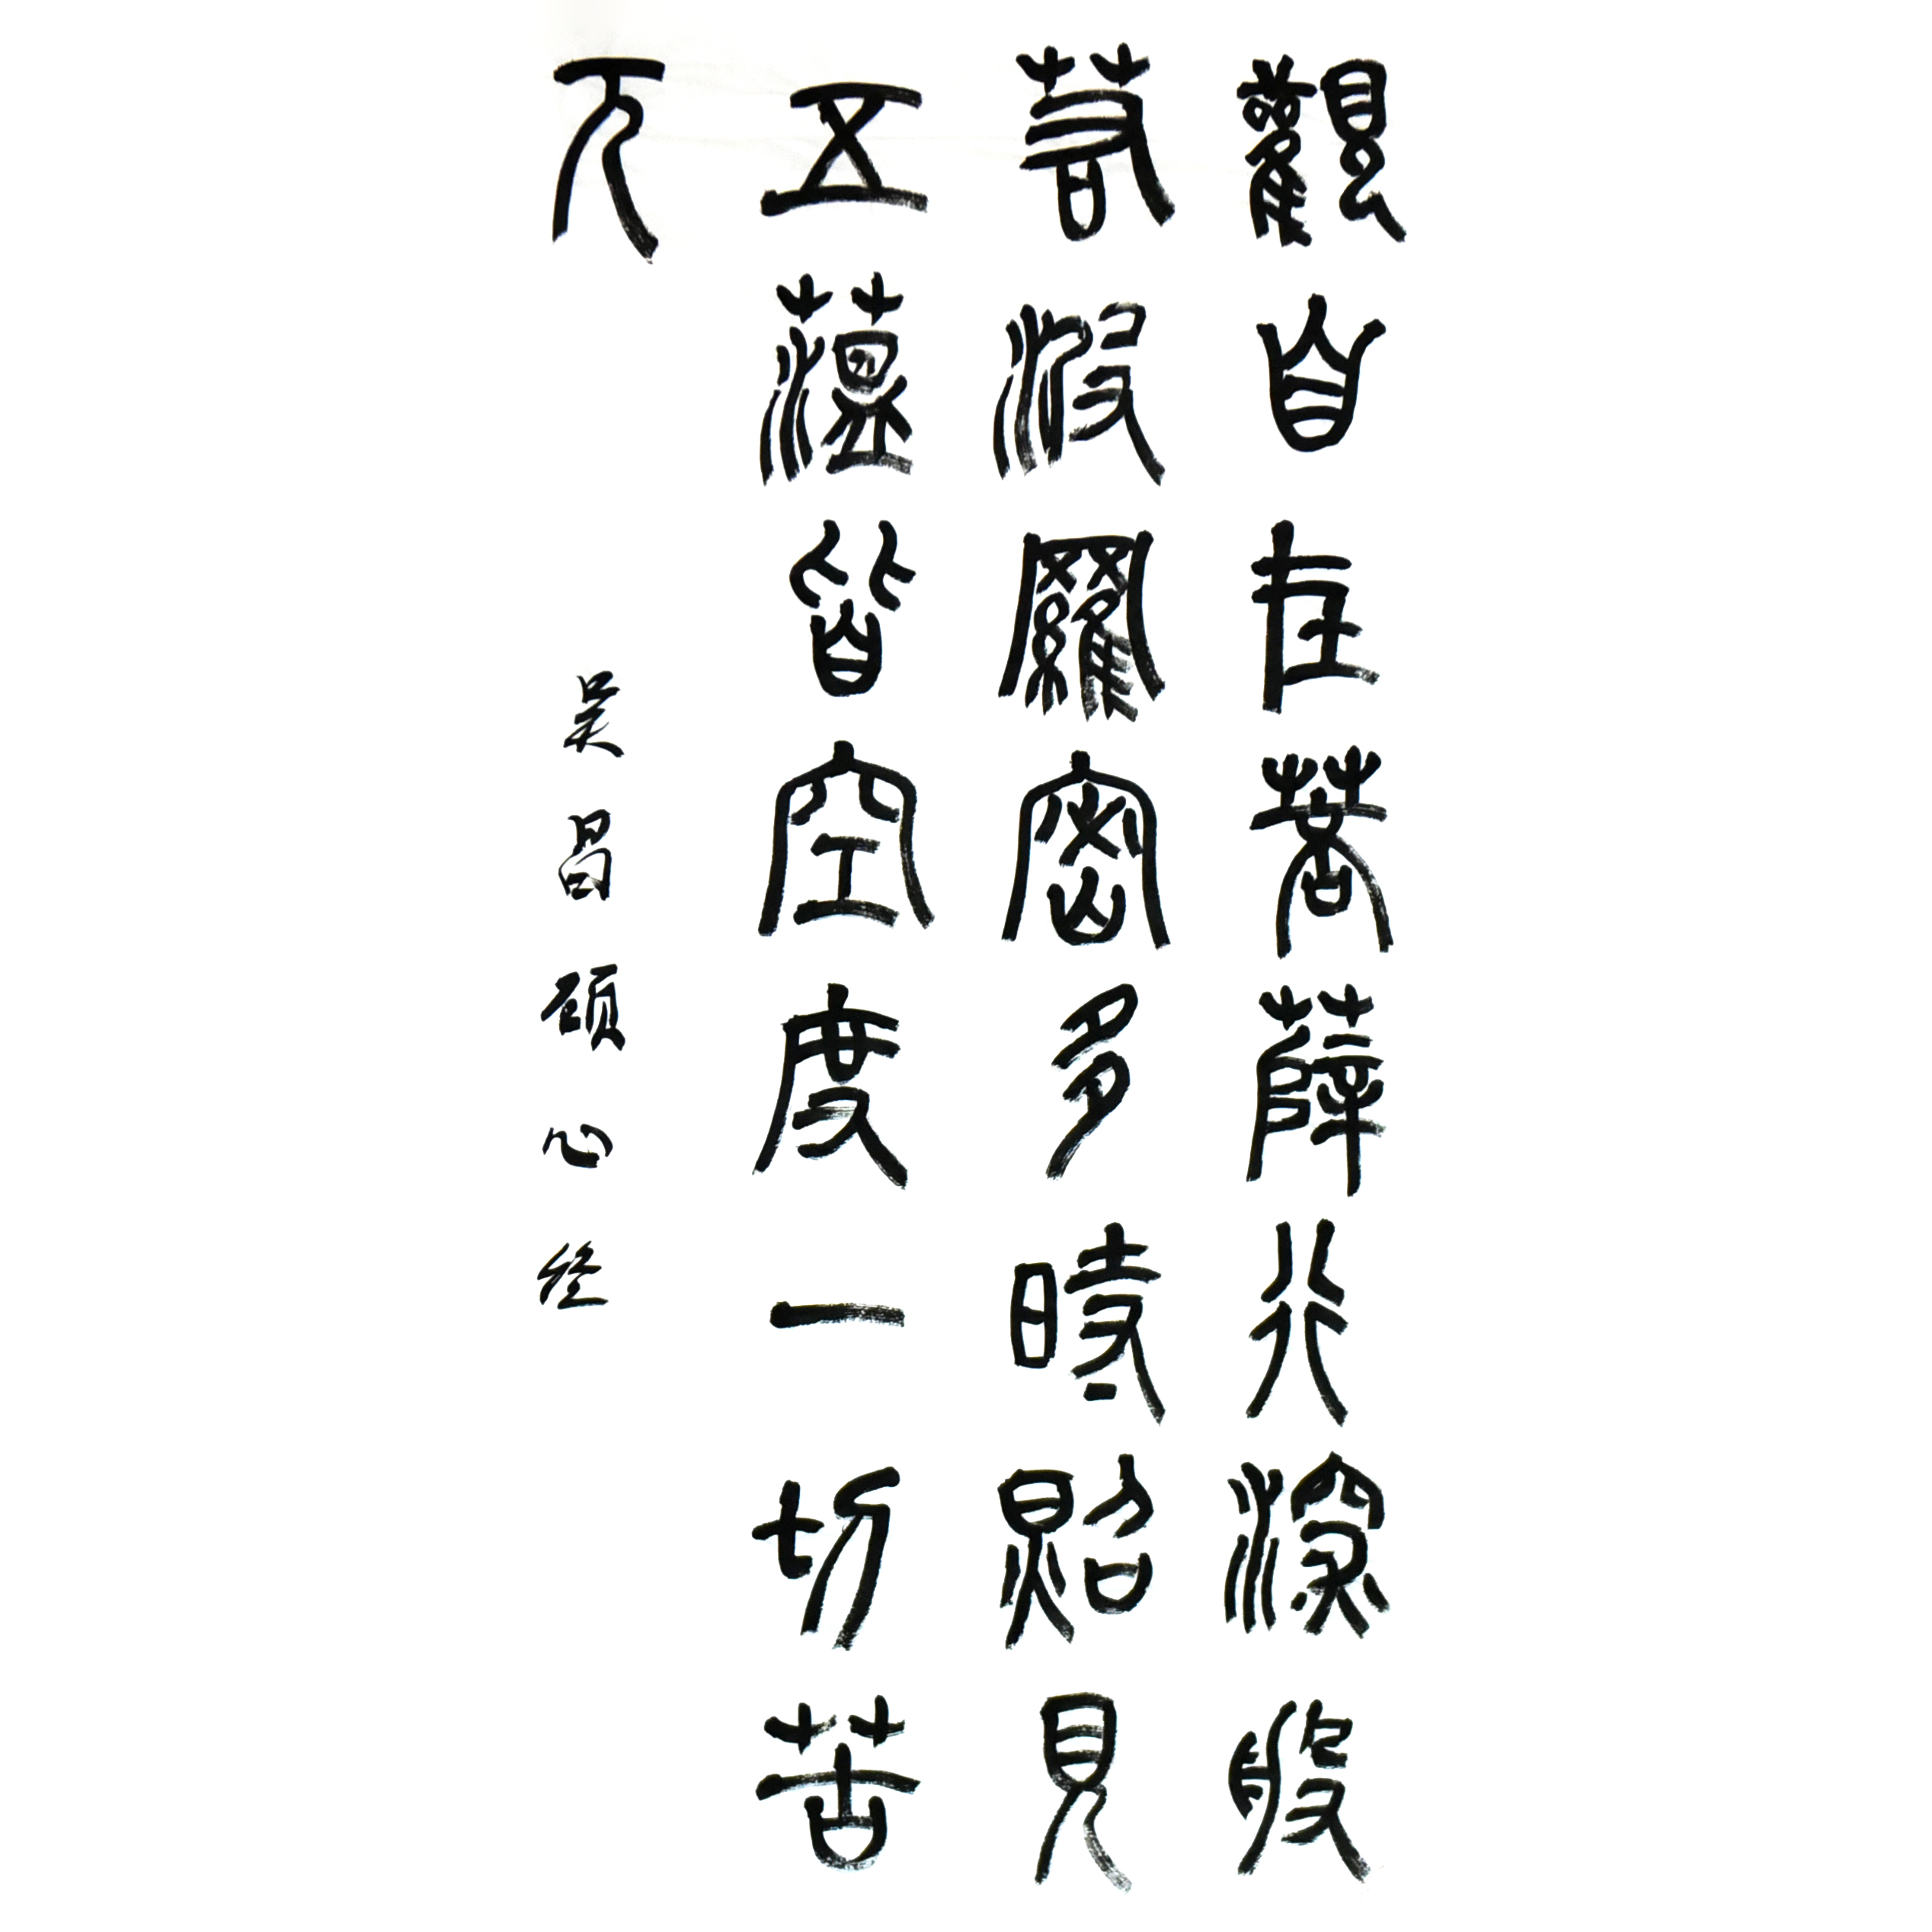 觀自在菩薩行深般
若波羅密多時照見
五蘊皆空度一切苦
厄
吴昌硕心经